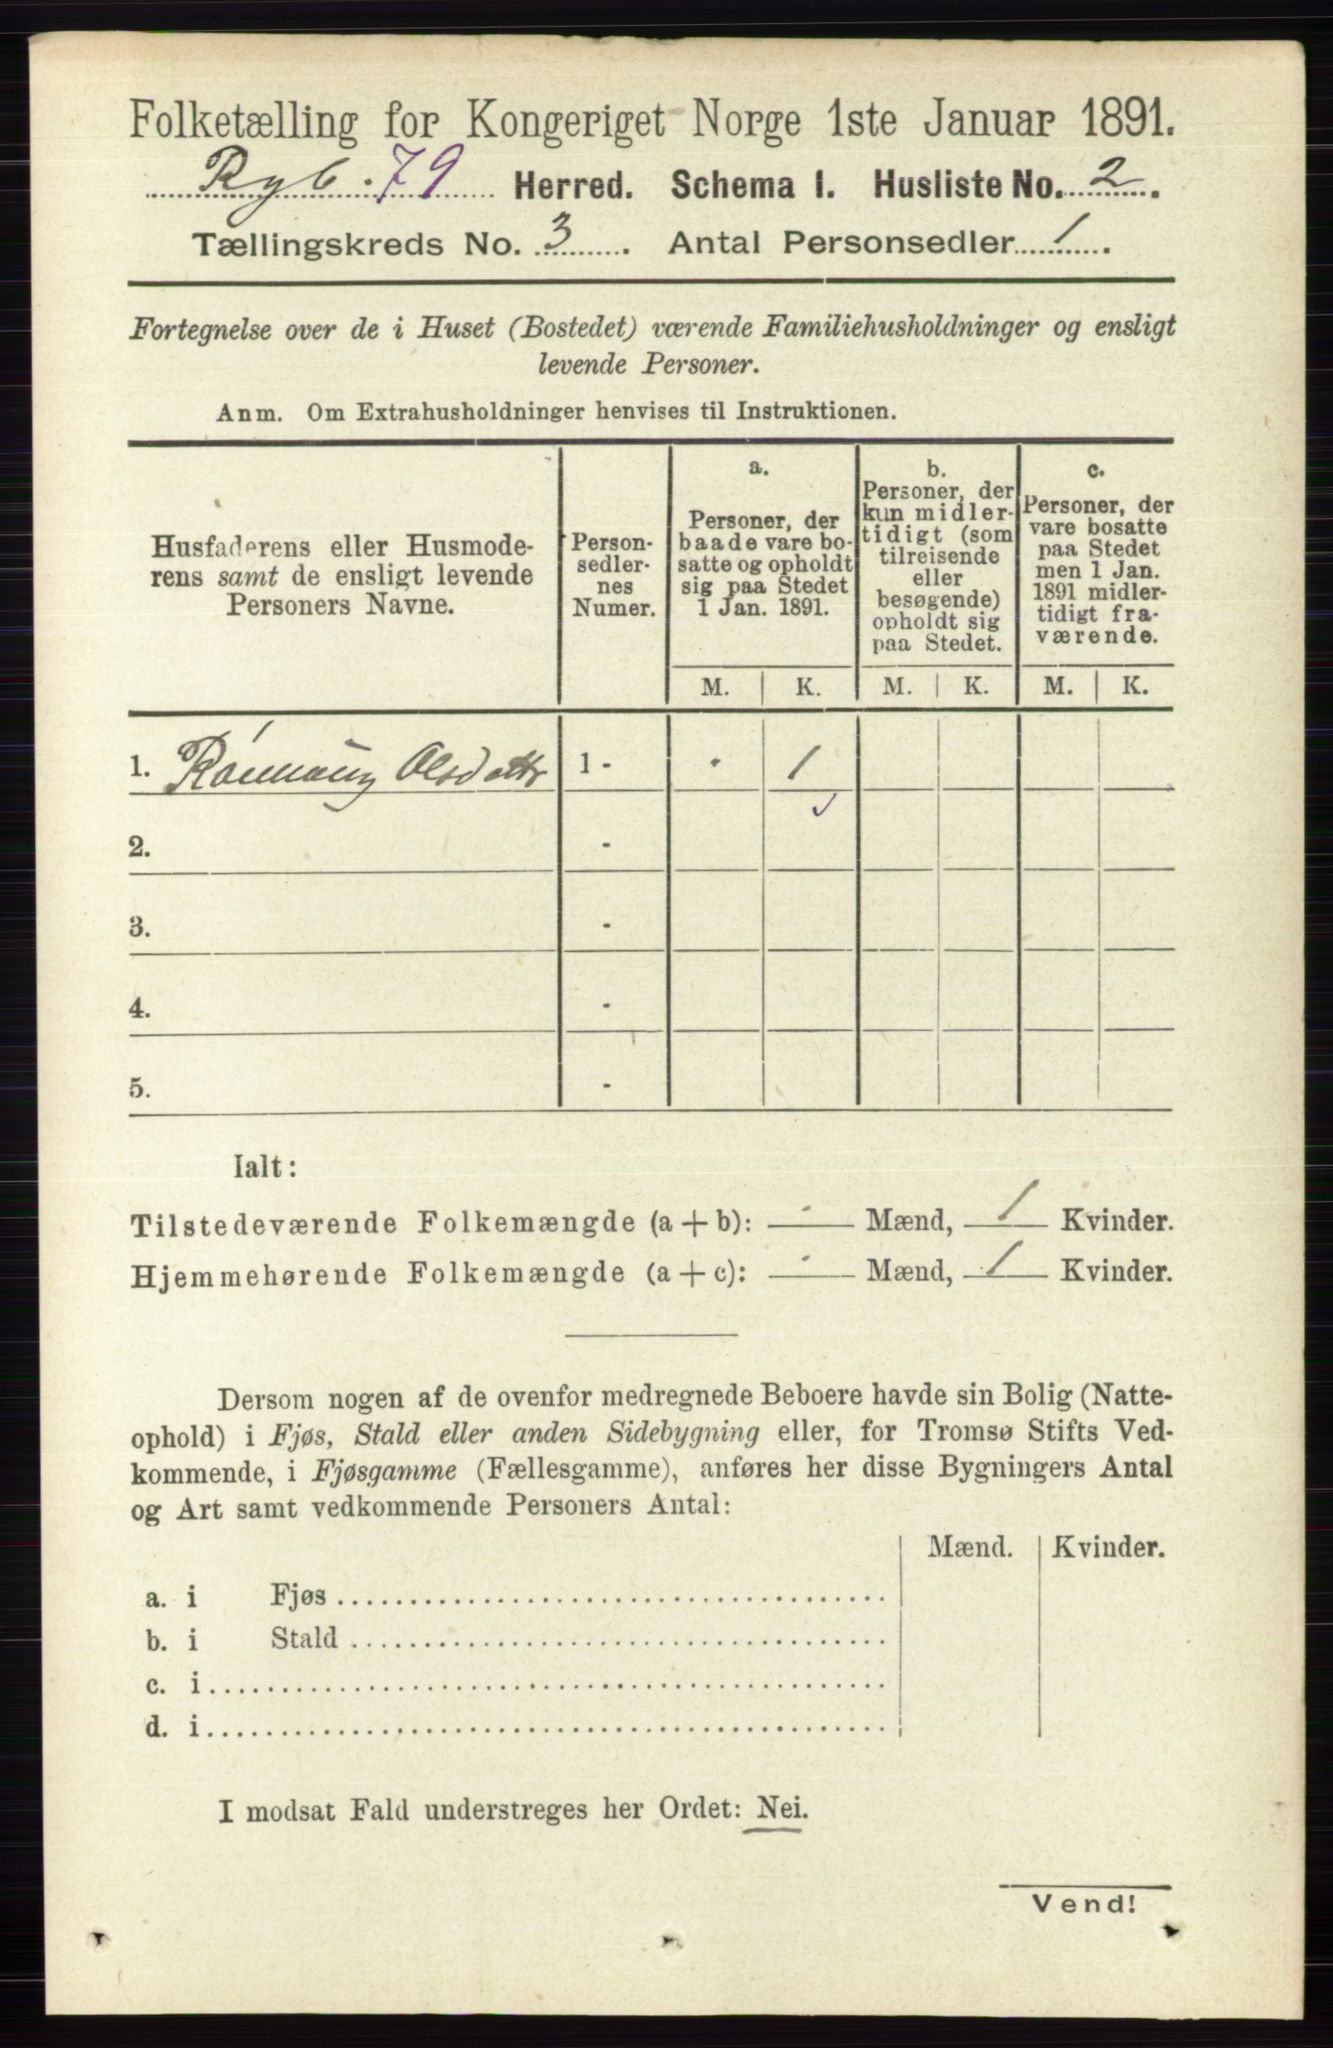 Folketælling for Kongeriget Norge 1ste Januar 1891.
79 Herred. Schema I. Husliste No. 2.
Tællingskreds No. 3. Antal Personsedler 1.
Fortegnelse over de i Huset (Bostedet) værende Familiehusholdninger og ensligt
levende Personer.
Anm. Om Extrahusholdninger henvises til Instruktionen.
Husfaderens eller Husmode-
rens samt de ensligt levende
Personers Navne.
Person-
sedler-
nes
Numer.
a.
Personer, der
baade vare bo-
satte og opholdt
sig paa Stedet
1 Jan. 1891.
b.
Personer, der
kun midler-
tidigt (som
tilreisende
eller
besøgende)
opholdt sig
paa Stedet.
c.
Personer, der
vare bosatte
paa Stedet
men 1 Jan.
1891 midler-
tidigt fra-
værende.
M. K. M. K. M. K.
1. Olsdattr 1 - · 1
2. -
3. -
4. -
5. -
Ialt:
Tilstedeværende Folkemængde (a + b): · Mænd, 1 Kvinder.
Hjemmehørende Folkemængde (a + c): · Mænd, 1 Kvinder.
Dersom nogen af de ovenfor medregnede Beboere havde sin Bolig (Natte-
ophold) i Fjøs, Stald eller anden Sidebygning eller, for Tromsø Stifts Ved-
kommende, i Fjøsgamme (Fællesgamme), anføres her disse Bygningers Antal
og Art samt vedkommende Personers Antal:
Mænd. Kvinder.
a. i Fjøs
b. i Stald
c. i
d. i
I modsat Fald understreges her Ordet: Nei.
Vend!